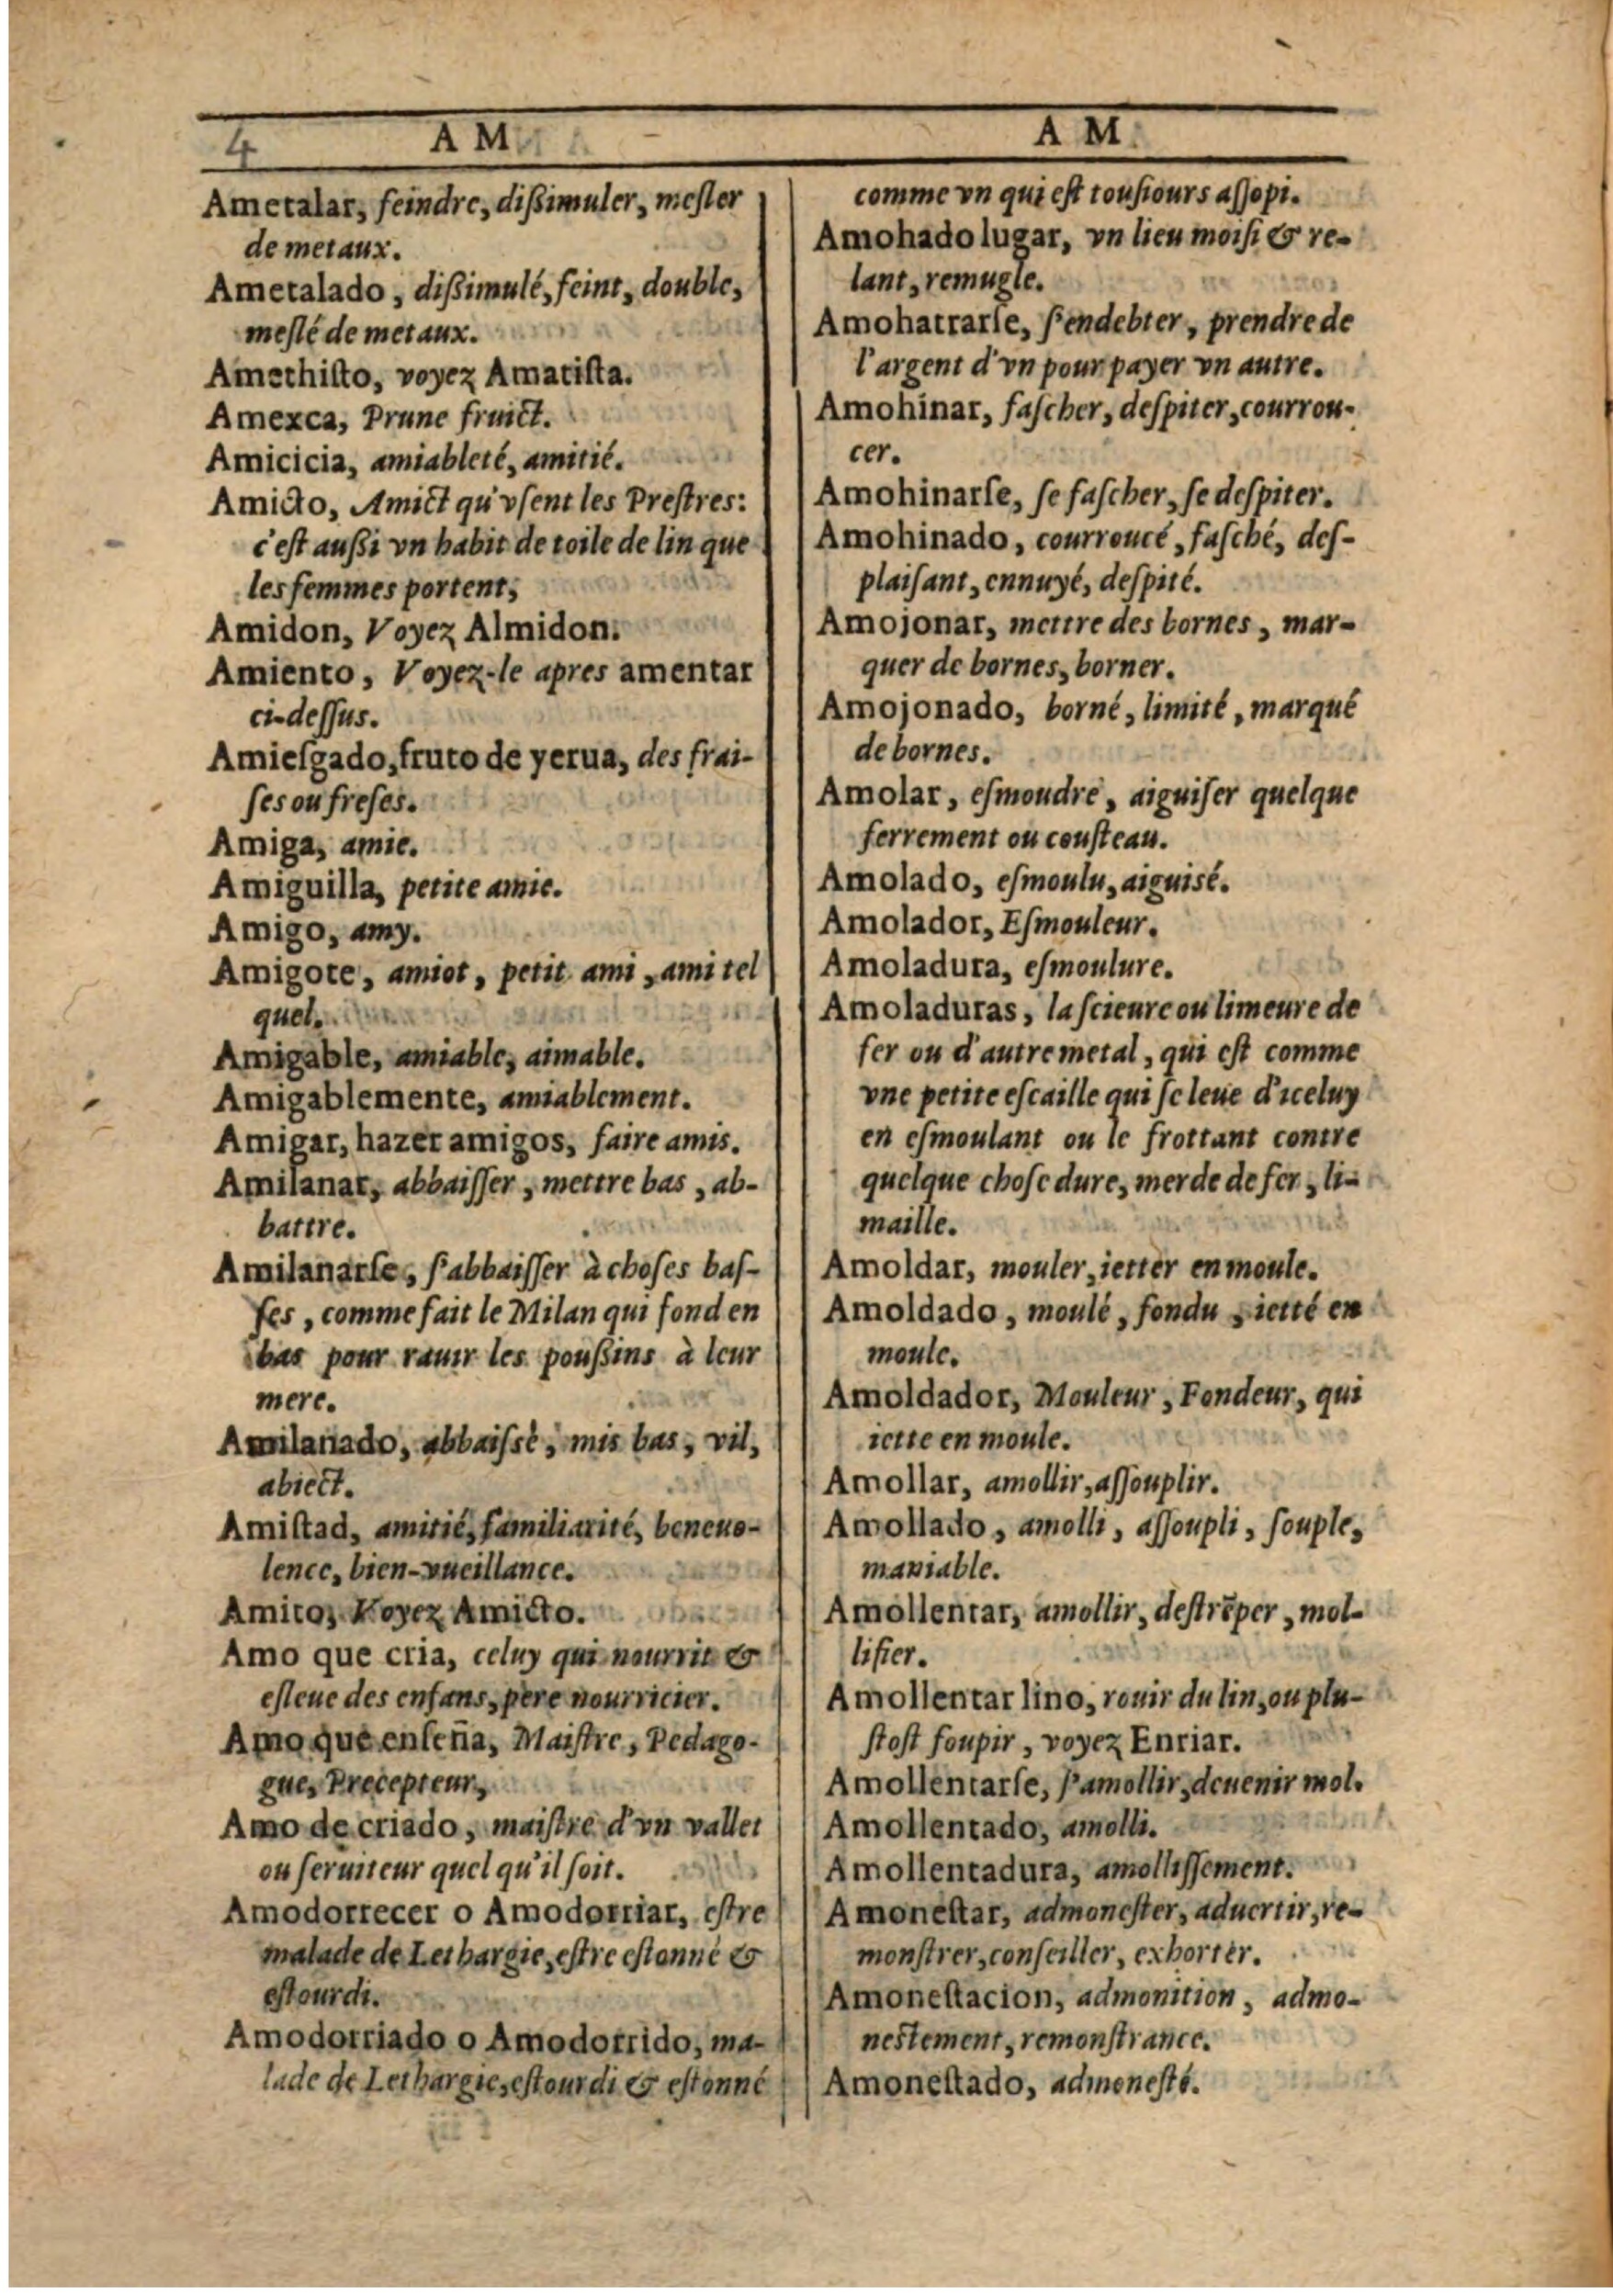 4
AM
AM
Ametalar, feindre, dißimuler, meſler
de metaux.
Ametalado, dißimulé, feint, double,
meſlé de metaux.
Amethiſto, voyez Amatiſta.
Amexca, Prune fruict.
Amicicia, amiableté, amitié.
Amicto, Amict qu'vſent les Preſtres:
c'eſt außi vn habit de toile de lin que
les femmes portent,
Amidon, Voyez Almidon.
Amiento, Voyez-le apres amentar
ci-deſſus.
Amieſgado, fruto de yerua, des frai-
ſes ou freſes.
Amiga, amie.
Amiguilla, petite amie.
Amigo, amy.
Amigote, amiot, petit ami, ami tel
quel.
Amigable, amiable, aimable.
Amigablemente, amiablement.
Amigar, hazer amigos, faire amis.
Amilanar, abbaiſſer, mettre bas, ab-
battre.
Amilanarſe, ſ'abbaiſſer à choſes baſ-
ſes, comme fait le Milan qui fond en
bas pour rauir les poußins à leur
mere.
Amilanado, abbaiſsé, mis bas, vil,
abiect.
Amiſtad, amitié, familiarité, beneuo-
lence, bien-vueillance.
Amito, Voyez Amicto.
Amo que cria, celuy qui nourrit &
eſleue des enfans, pere nourricier.
Amo que enſeña, Maiſtre, Pedago-
gue, Precepteur,
Amo de criado, maiſtre d'vn vallet
ou ſeruiteur quel qu'il ſoit.
Amodorrecer o Amodorriar, eſtre
malade de Lethargie, eſtre eſtonné &
eſtourdi.
Amodorriado o Amodorrido, ma-
lade de Lethargie, eſtourdi & eſtonné
comme vn qui eſt touſiours aſſopi.
Amohado lugar, vn lieu moiſi & re-
lant, remugle.
Amohatrarſe, ſ'endebter, prendre de
l'argent d'vn pour payer vn autre.
Amohinar, faſcher, deſpiter, courrou-
cer.
Amohinarſe, ſe faſcher, ſe deſpiter.
Amohinado, courroucé, faſché, deſ-
plaiſant, ennuyé, deſpité.
Amojonar, mettre des bornes, mar-
quer de bornes, borner.
Amojonado, borné, limité, marqué
de bornes.
Amolar, eſmoudre, aiguiſer quelque
ferrement ou couſteau.
Amolado, eſmoulu, aiguisé.
Amolador, Eſmouleur.
Amoladura, eſmoulure.
Amoladuras, la ſcieure ou limeure de
fer ou d'autre metal, qui eſt comme
vne petite eſcaille qui ſe leue d'iceluy
en eſmoulant ou le frottant contre
quelque choſe dure, merde de fer, li-
maille.
Amoldar, mouler, ietter en moule.
Amoldado, moulé, fondu, ietté en
moule.
Amoldador, Mouleur, Fondeur, qui
iette en moule.
Amollar, amollir, aſſouplir.
Amollado, amolli, aſſoupli, ſouple,
maniable.
Amollentar, amollir, deſtrẽper, mol-
lifier.
Amollentar lino, rouir du lin, ou plu-
ſtoſt foupir, voyez Enriar.
Amollentarſe, ſ'amollir, deuenir mol.
Amollentado, amolli.
Amollentadura, amolliſſement.
Amoneſtar, admoneſter, aduertir, re-
monſtrer, conſeiller, exhorter.
Amoneſtacion, admonition, admo-
neſtement, remonſtrance.
Amoneſtado, admoneſté.